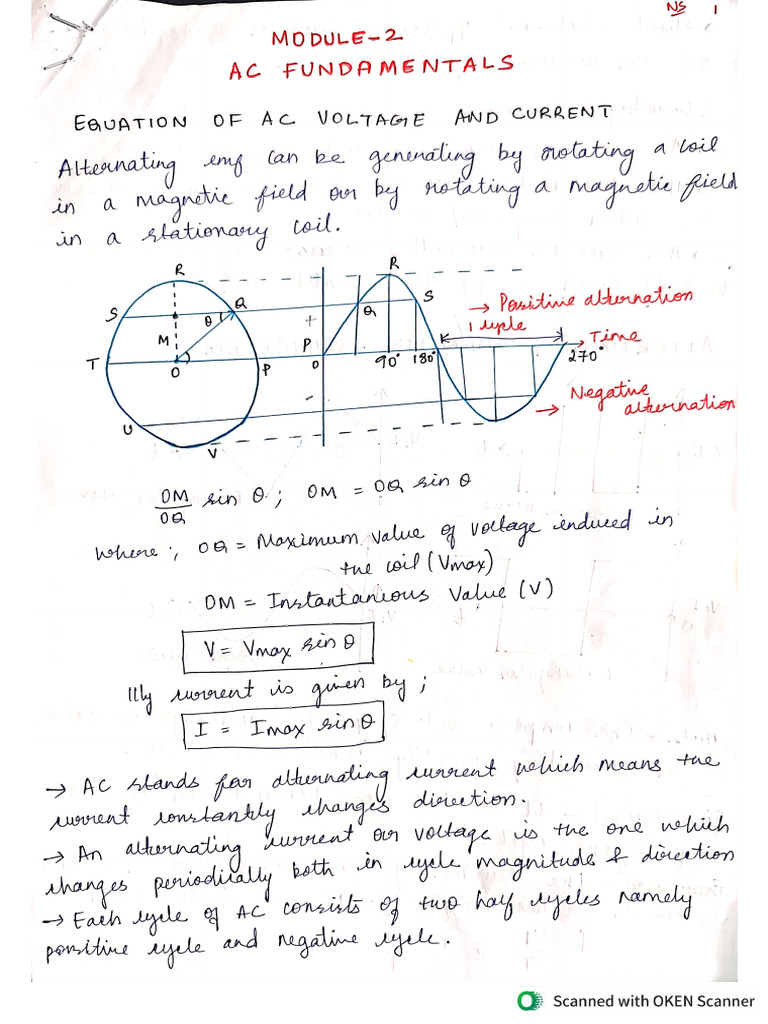 NS 1
MODULE-2
AC FUNDAMENTALS
EQUATION OF AC VOLTAGE AND CURRENT
Alternating emf can be generating by rotating a coil
in a magnetic field our by rotating a magnetic field
in a stationary coil.
R
R
S
Q
Q
S
→ Positive alternation
θ
+
1 cycle
M
P
→ Time
T
O
P
0
90°
180°
270°
-
Negative
→ alternation
U
V
OM/OQ sin θ ; OM = OQ sin θ
where ; OQ = Maximum value of voltage induced in
the coil (Vmax)
OM = Instantaneous Value (V)
V = Vmax sin θ
Illy current is given by ;
I = Imax sin θ
→ AC stands for alternating current which means the
current constantly changes direction.
→ An alternating current our voltage is the one which
changes periodically both in cycle magnitude & direction
→ Each cycle of AC consists of two half cycles namely
positive cycle and negative cycle.
Scanned with OKEN Scanner